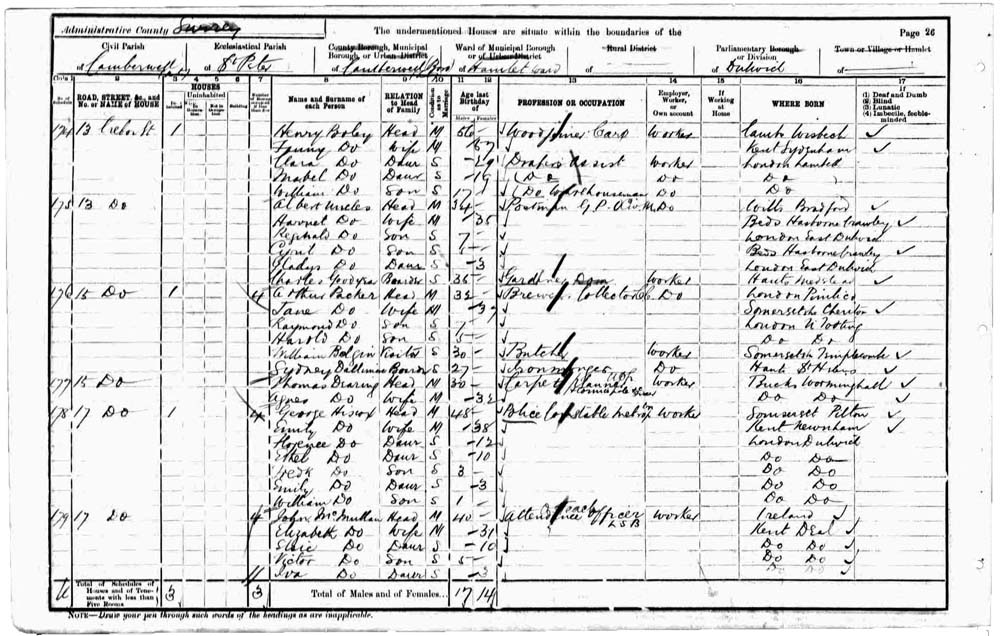 Administrative County Surrey
The undermentioned Houses are situate within the boundaries of the
Page 26
Civil Parish
of Camberwell
Ecclesiastical Parish
of St Peter
County Borough, Municipal Borough, or Urban District
of Camberwell Boro
Ward of Municipal Borough or of Urban District
of Hamlet Ward
Rural District
of
Parliamentary Borough or Division
of Dulwich
Town or Village or Hamlet
of
Cols 1 2 3 4 5 6 7 8 9 10 11 12 13 14 15 16 17
No. of Schedule
ROAD, STREET, &c., and No. or NAME of HOUSE
HOUSES
Uninhabited
Building
Name and Surname of each Person
RELATION to Head of Family
Condition as to Marriage
Age last Birthday of
Males Females
PROFESSION OR OCCUPATION
Employer, Worker, or Own account
If Working at Home
WHERE BORN
If
(1) Deaf and Dumb
(2) Blind
(3) Lunatic
(4) Imbecile, feeble-minded
174 13 St 1 Henry Head M 56 Wood Joiner Carp Worker Cambs Wisbech
Fanny Do Wife M 57 Kent Sydenham
Clara Do Daur S 29 Drapers assist Worker London Lambeth
Mabel Do Daur S 19 Do Do Do
William Do Son S 17 Do Warehouseman Do Do
175 13 Do Albert Head M 34 Postman G.P.O. Do Wilts Bradford
Harriet Do Wife M 35 Beds Harborne Crawley
Reginald Do Son S 7 London East Dulwich
Cyril Do Son S Beds Harborne Crawley
Gladys Do Daur S 3 London East Dulwich
Charles Goodyear Boarder S 35 Gardener Dom Worker Hants Medstead
176 15 Do 1 4 Arthur Packer Head M 32 Brewers Collector Do London Pimlico
Jane Do Wife M 37 Somersetsh Cheriton
Raymond Do Son S 7 London U Tooting
Harold Do Son S 5 Do Do
William Visitor S 30 Butcher Worker Somersetsh Templecomb
Sydney Boarder S 27 Ironmonger Do Hants
177 15 Do Thomas Dearing Head M 30 Carpet Planner Worker Bucks Worminghall
Agnes Do Wife M 32 Do Do
178 17 Do 1 4 George Hiscox Head M 45 Police Constable Metrop Worker Somerset Pilton
Emily Do Wife M 38 Kent Newnham
Florence Do Daur S 12 London Dulwich
Ethel Do Daur S 10 Do Do
Do Son S 8 Do Do
Emily Do Daur S 3 Do Do
William Do Son S 1 Do Do
179 17 Do 4 John McMullan Head M 40 Attendance Officer L S B Worker Ireland
Elizabeth Do Wife M 31 Kent Deal
Elsie Do Daur S 10 Do Do
Victor Do Son S 5 Do Do
Iva Do Daur S 3 Do Do
Total of Schedules of Houses and of Tenements with less than Five Rooms
3 3
Total of Males and of Females...
17 14
NOTE—Draw your pen through such words of the headings as are inapplicable.